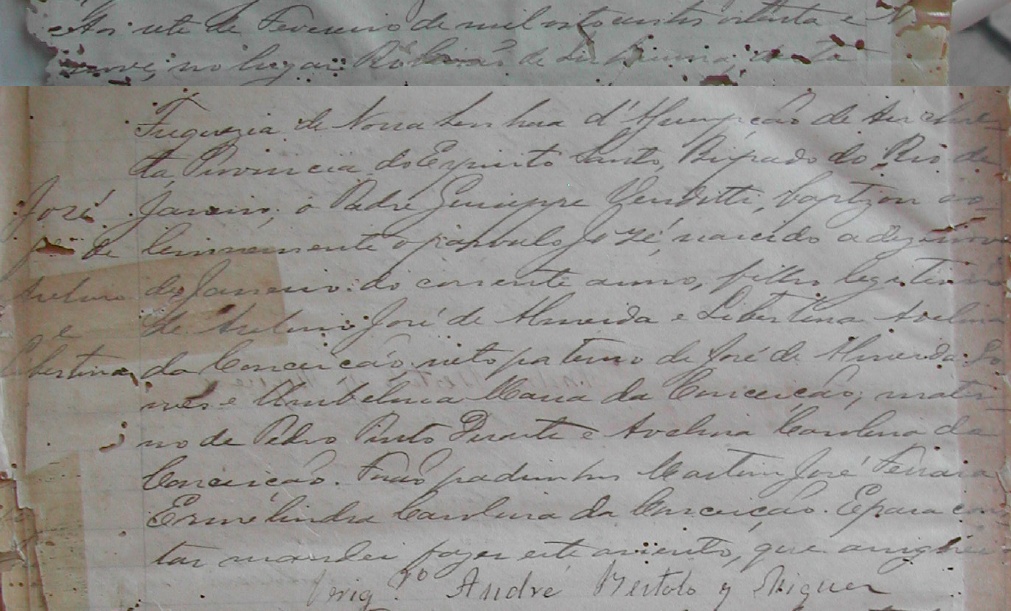 Aos sete de Fevereiro de mil oitocentos oitenta e N
nove, no lugar de nesta
Freguezia de Nossa Senhora d'Assumpção de
da Provincia do Espirito Santo, Bispado do Rio de
José Janeiro, o Padre Giuseppe Venditti, baptizou so
fo de lemnemente o parvulo José, nascido a dezenove
Avelino de Janeiro do corrente anno, filho legitimo
e de Avelino José de Almeida e Libertina Avelina
Libertina da Conceição, neto paterno de José de Almeida
e Umbelina Maria da Conceição, mater
no de Pedro Pinto Duarte e Avelina Carolina da
Conceição. Forão padrinhos Martim José Ferrara
Ermelindra Carolina da Conceição. E para cons
tar mandei fazer este assento, que assignei
Vrigro André Bertolo y Miguez